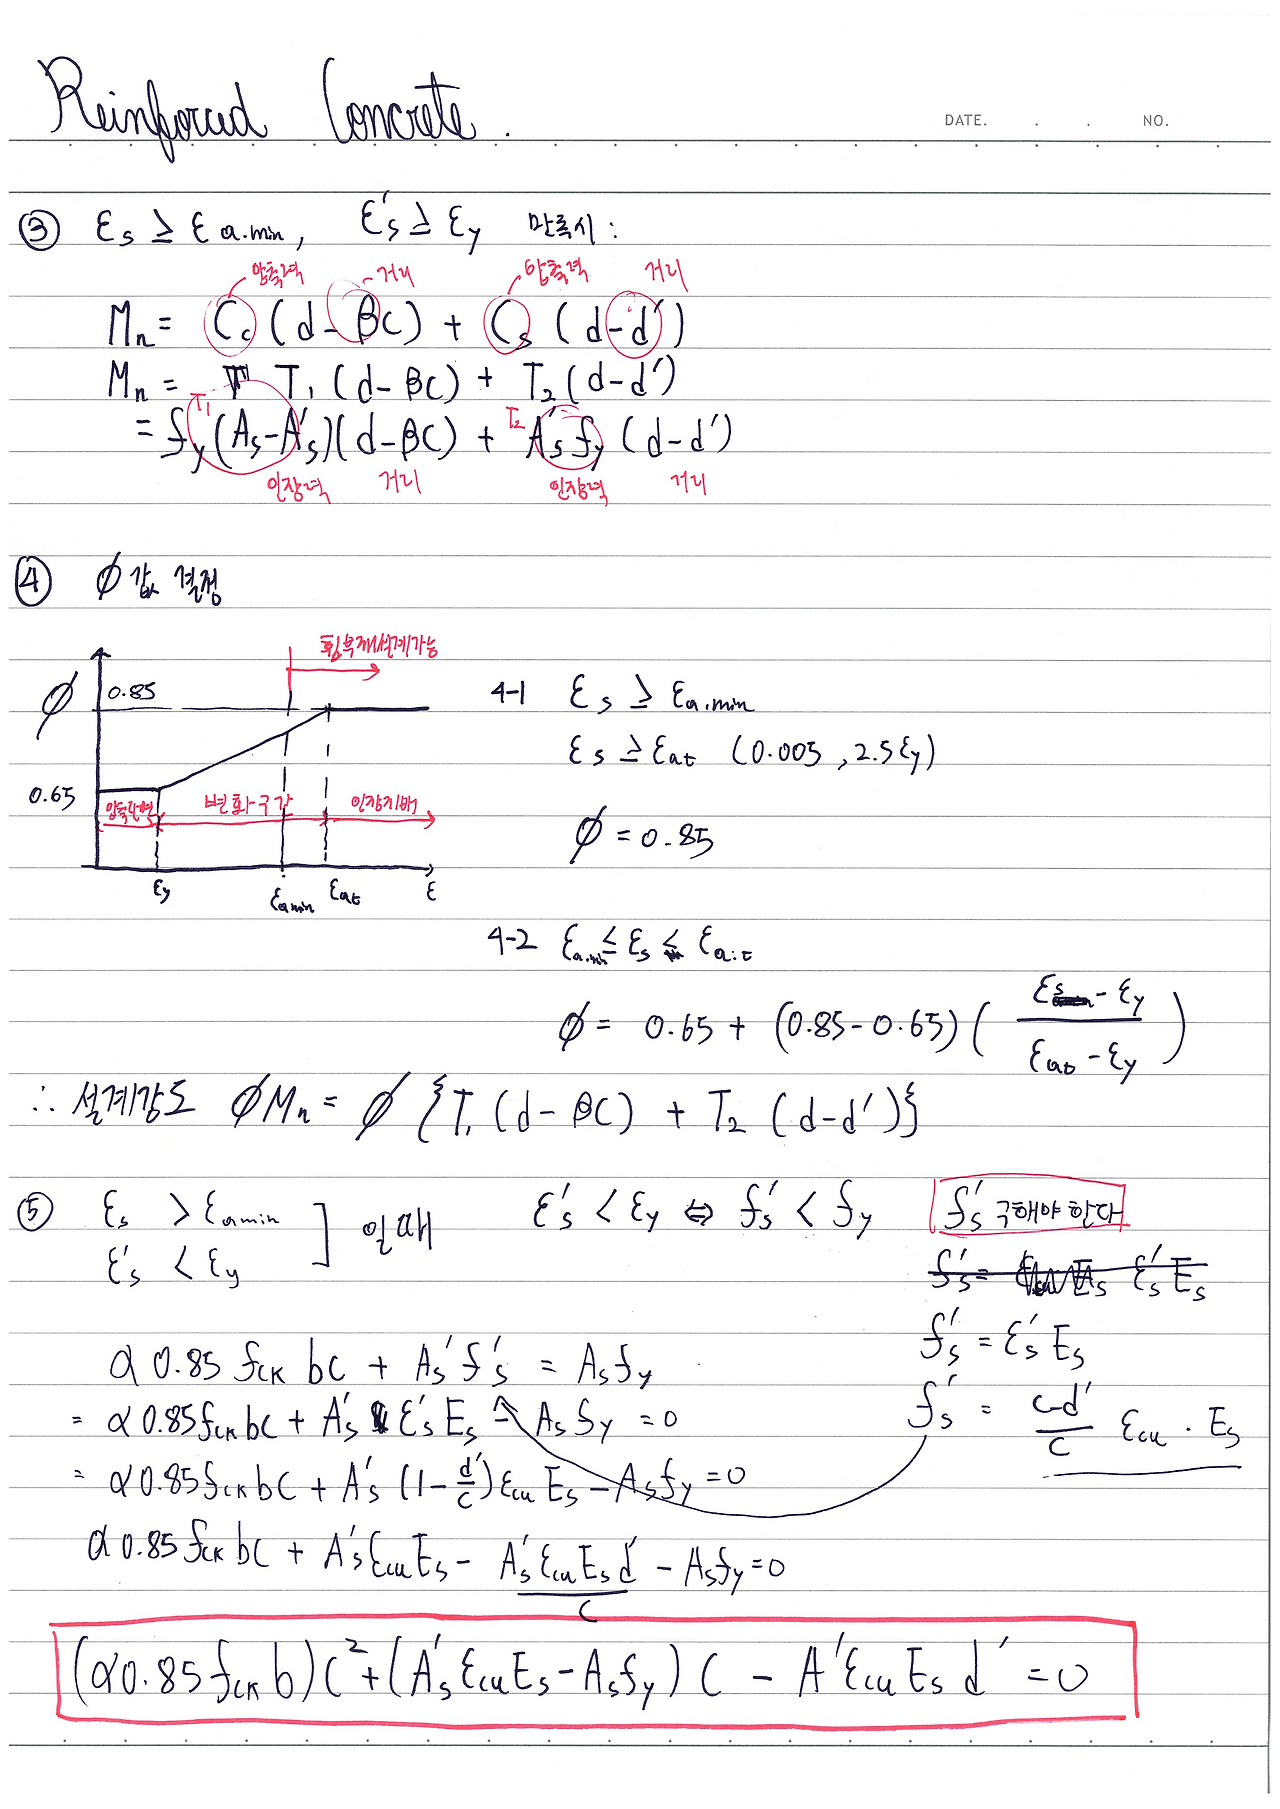 Reinforced Concrete.
DATE. . . NO.
③ εs ≥ εa.min, ε's ≥ εy 만족시 :
압축력 거리 압축력 거리
Mn = Cc (d - βC) + Cs (d - d')
Mn = T1 (d - βC) + T2 (d - d')
T1 T2
= fy (As - A's)(d - βC) + A's fy (d - d')
인장력 거리 인장력 거리
④ ϕ값 결정
휨부재설계가능
ϕ 0.85
0.65
압축단면 변화구간 인장지배
εy εa.min εat ε
4-1 εs ≥ εa.min
εs ≥ εat (0.005, 2.5εy)
ϕ = 0.85
4-2 εa.min ≤ εs ≤ εa.t
ϕ = 0.65 + (0.85 - 0.65) ( (εs - εy) / (εat - εy) )
∴ 설계강도 ϕMn = ϕ {T1 (d - βC) + T2 (d - d')}
⑤ εs > εa.min
ε's < εy ] 일 때
ε's < εy ⇔ f's < fy
f's 구해야 한다
f's = ε's Es
f's = ε's Es
f's = (c-d')/c εcu · Es
α 0.85 fck bC + As' f's = As fy
= α 0.85 fck bC + A's ε's Es - As fy = 0
= α 0.85 fck bC + A's (1 - d'/c) εcu Es - As fy = 0
α 0.85 fck bC + A's εcu Es - (A's εcu Es d')/C - As fy = 0
(α 0.85 fck b) C² + (A's εcu Es - As fy) C - A' εcu Es d' = 0